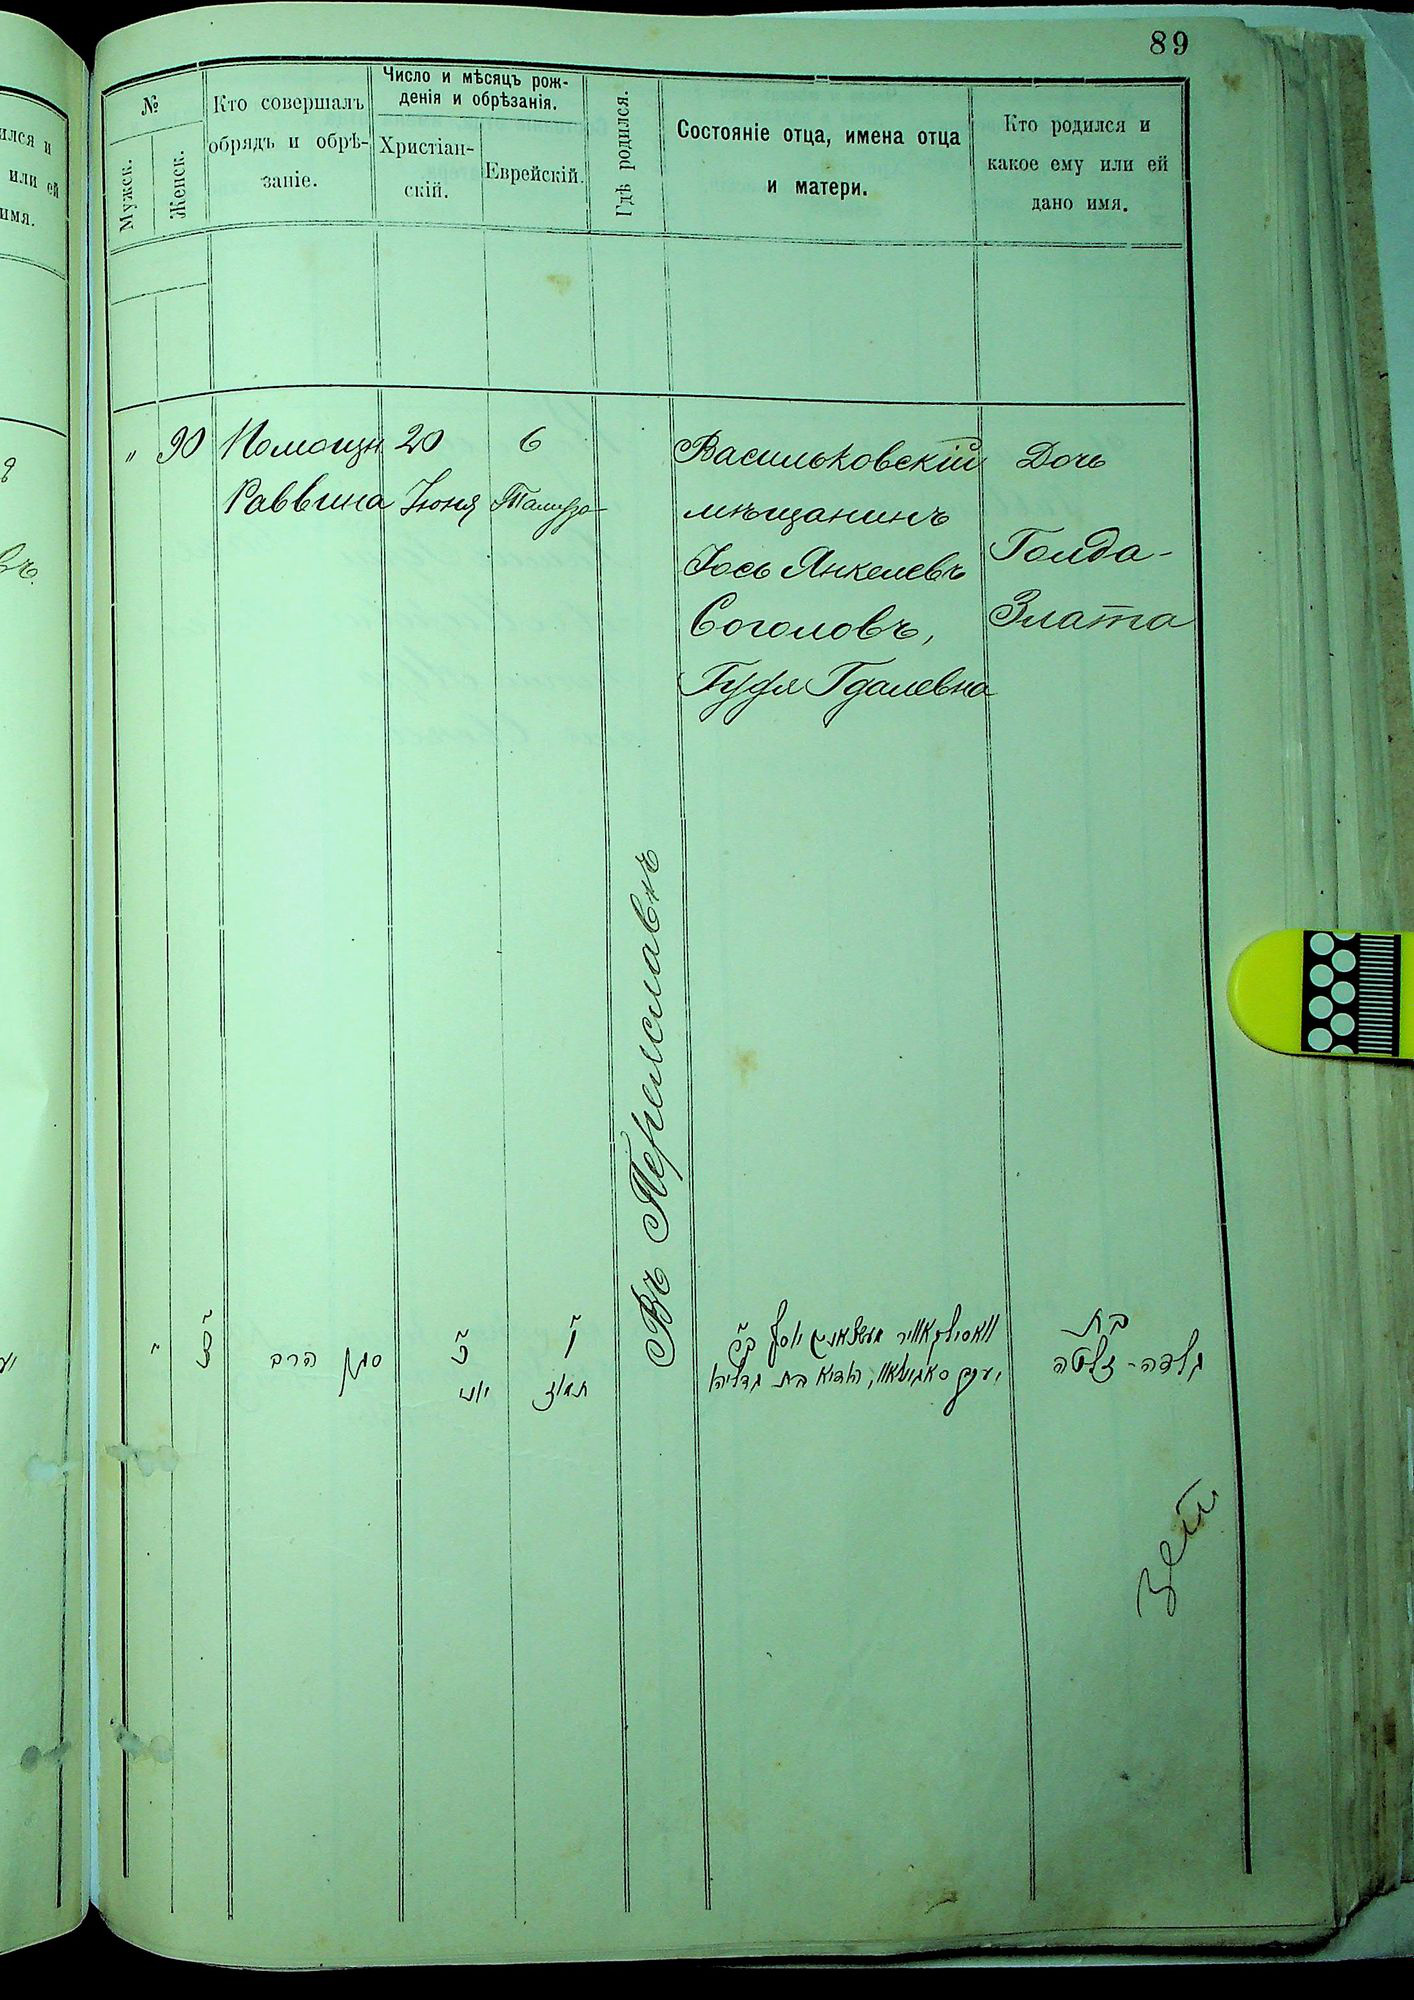 89
№
Мужск.
Женск.
Кто совершалъ
обрядъ и обрѣ-
заніе.
Число и мѣсяцъ рож-
денія и обрѣзанія.
Христіан-
скій.
Еврейскій.
Гдѣ родился.
Состояніе отца, имена отца
и матери.
Кто родился и
какое ему или ей
дано имя.
ился и
или ей
имя.
" 90
Помощн
Раввина
20
Іюня
6
Тамуза
Въ Переяславѣ
Васильковскій
мѣщанинъ
Іось Янкелевъ
Соголовъ,
Гдалевна
Дочь
Голда-
Злата
סגן הרב
כ
יוני
ו
תמוז
יוסף
בת גדליהו
בת
גולדה-זלטה